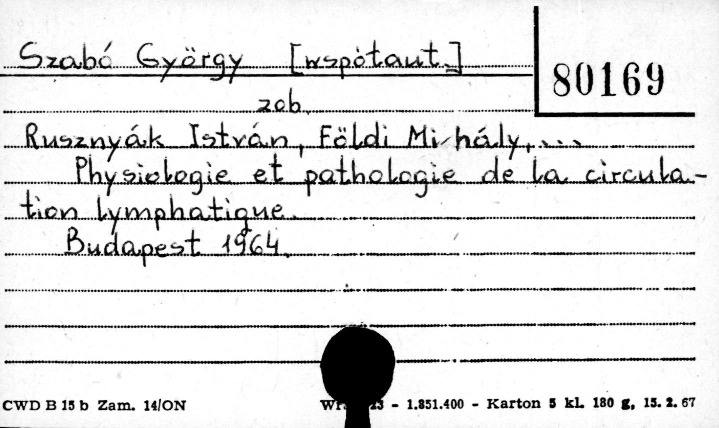 Szabó György [wspótaut.]
80169
zob.
Rusznyák István, Földi Mihály,...
Physiologie et pathologie de la circula-
tion lymphatique.
Budapest 1964.
CWD B 15 b Zam. 14/ON
- 1.851.400 - Karton 5 kl. 180 g, 15. 2. 67